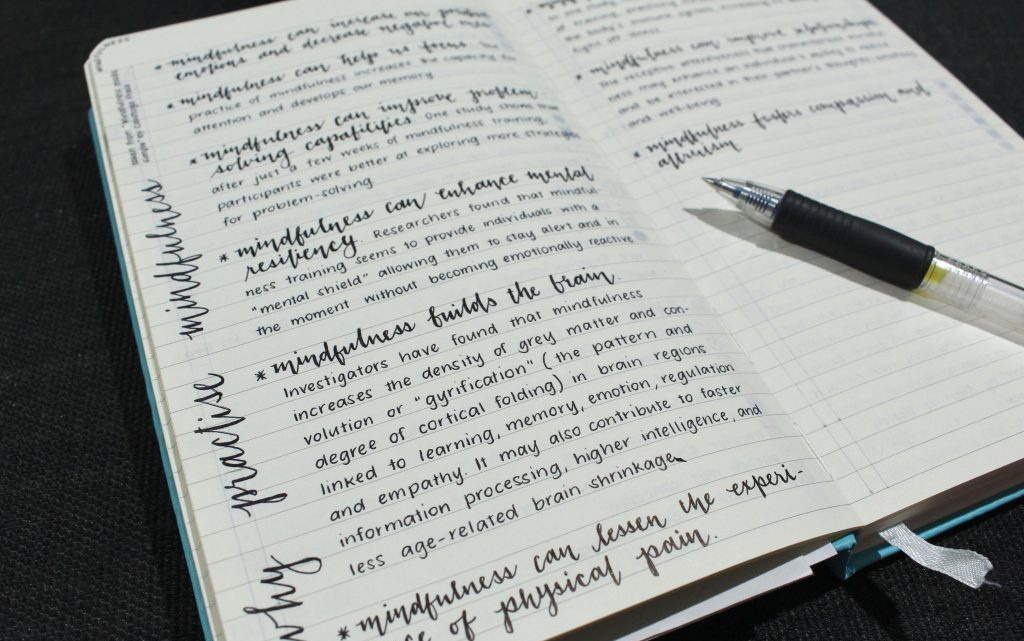 why practise mindfulness
* mindfulness can increase our positive
emotions and decrease negative
* mindfulness can help us focus. The
practice of mindfulness increases the capacity for
attention and develops our memory.
* mindfulness can improve problem
solving capabilities. One study shows that
after just a few weeks of mindfulness training,
participants were better at exploring more strategies
for problem-solving
* mindfulness can enhance mental
resiliency. Researchers found that mindful-
ness training seems to provide individuals with a
"mental shield" allowing them to stay alert and in
the moment without becoming emotionally reactive
* mindfulness builds the brain.
Investigators have found that mindfulness
increases the density of grey matter and con-
volution or "gyrification" (the pattern and
degree of cortical folding) in brain regions
linked to learning, memory, emotion, regulation
and empathy. It may also contribute to faster
information processing, higher intelligence, and
less age-related brain shrinkage.
* mindfulness can lessen the experi-
ce of physical pain.
* mindfulness can improve relationships
and be interested in their partner's thoughts,
and well-being
* mindfulness fosters compassion and
altruism